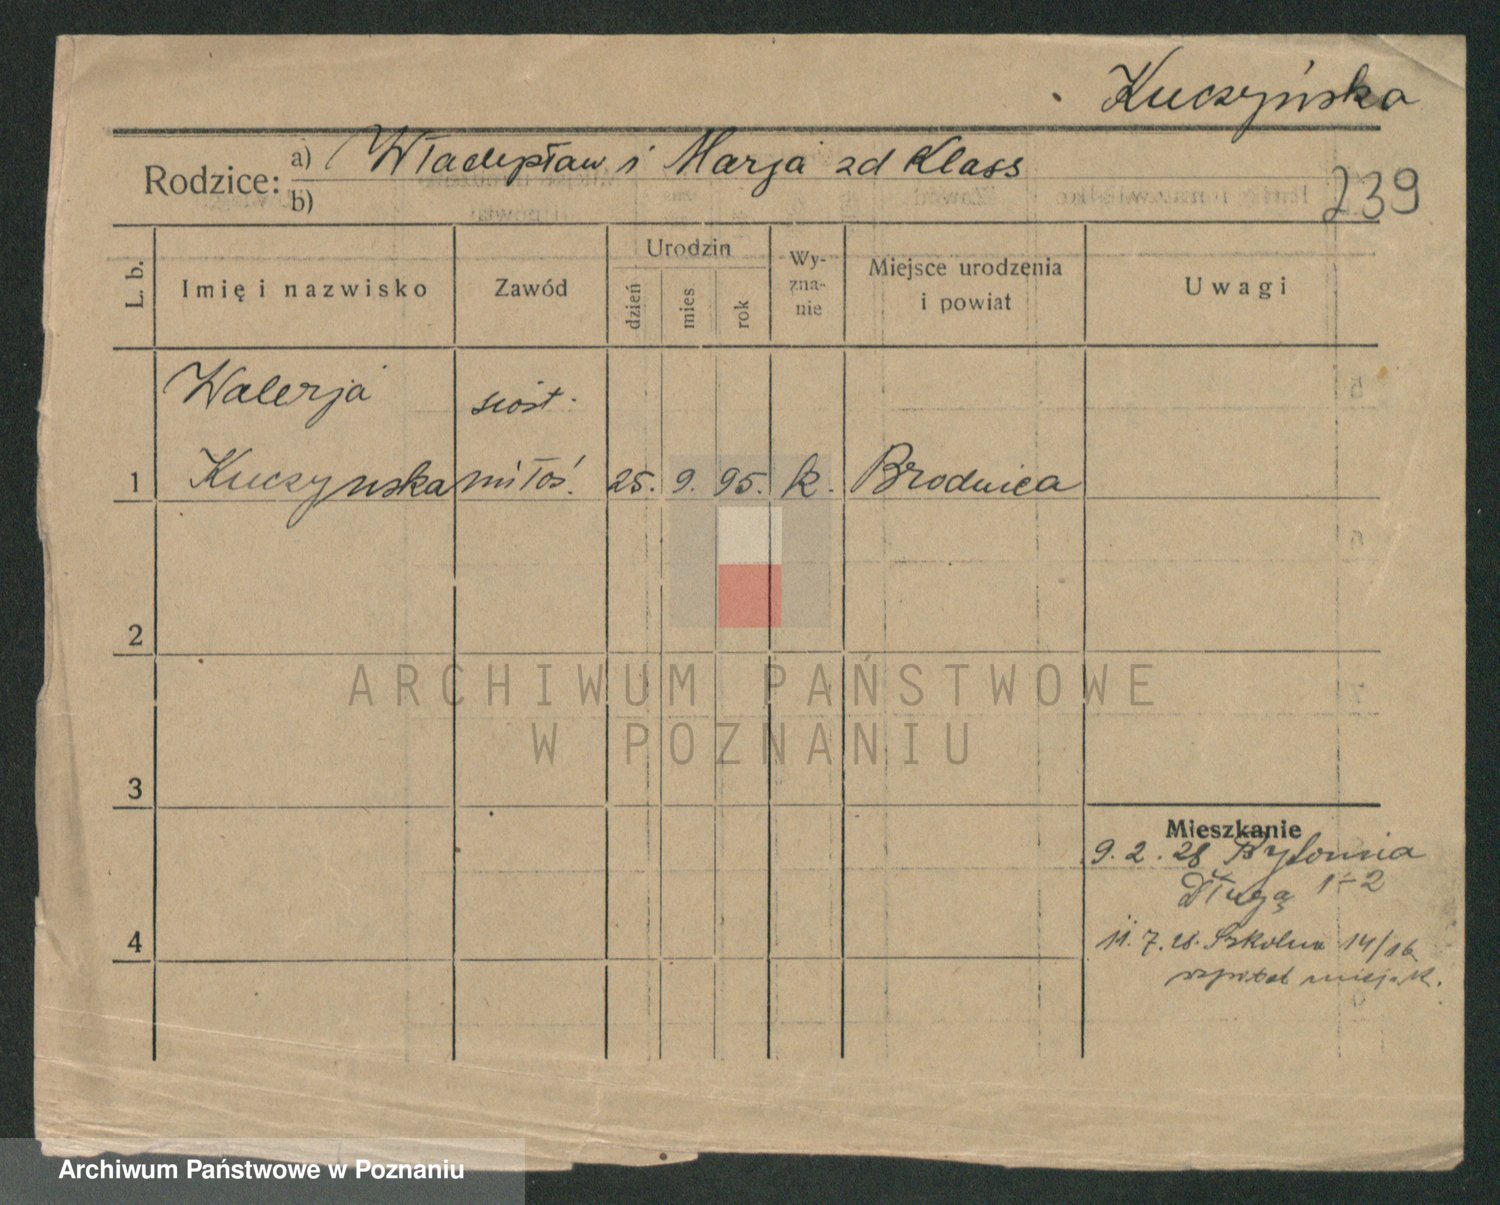 Kuczyńska
Rodzice: a) Władysław i Marja zd Klass
b)
239
L. b. Imię i nazwisko Zawód Urodzin dzień mies rok Wy-zna-nie Miejsce urodzenia i powiat Uwagi
Walerja siost.
1 Kuczynska miłoś. 25. 9. 95. k. Brodnica
2
3
4
Mieszkanie
9. 2. 28
Długa 1-2
11. 7. 28. Szkolna 14/16
szpital miejsk.
ARCHIWUM PAŃSTWOWE
W POZNANIU
Archiwum Państwowe w Poznaniu